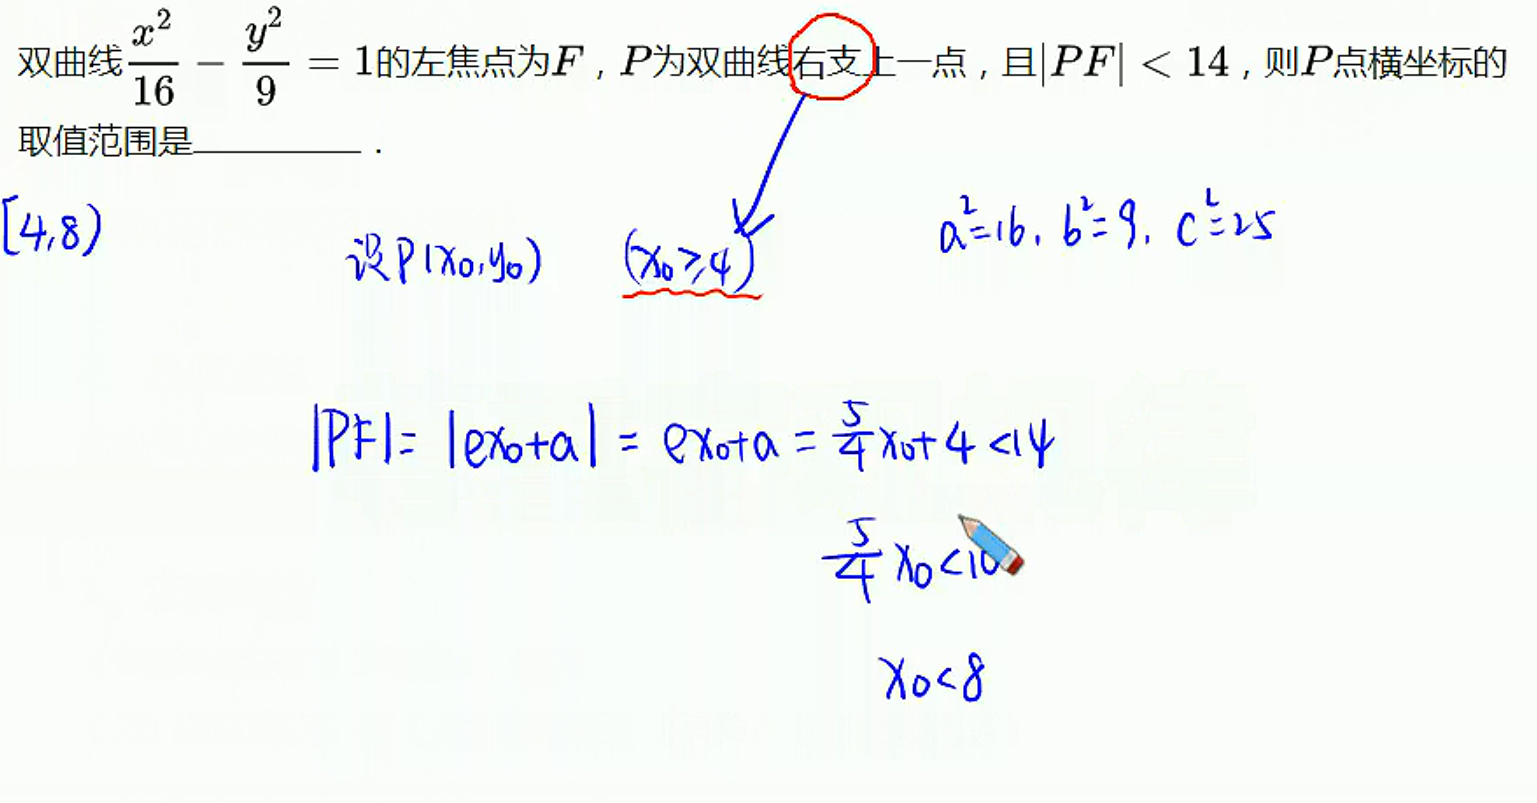 双曲线x²/16 − y²/9 = 1的左焦点为F，P为双曲线右支上一点，且|PF| < 14，则P点横坐标的
取值范围是________．
[4,8)
设P(x₀,y₀) (x₀≥4)
a²=16, b²=9, c²=25
|PF|= |ex₀+a| = ex₀+a = 5/4 x₀+4 <14
5/4 x₀<10
x₀<8